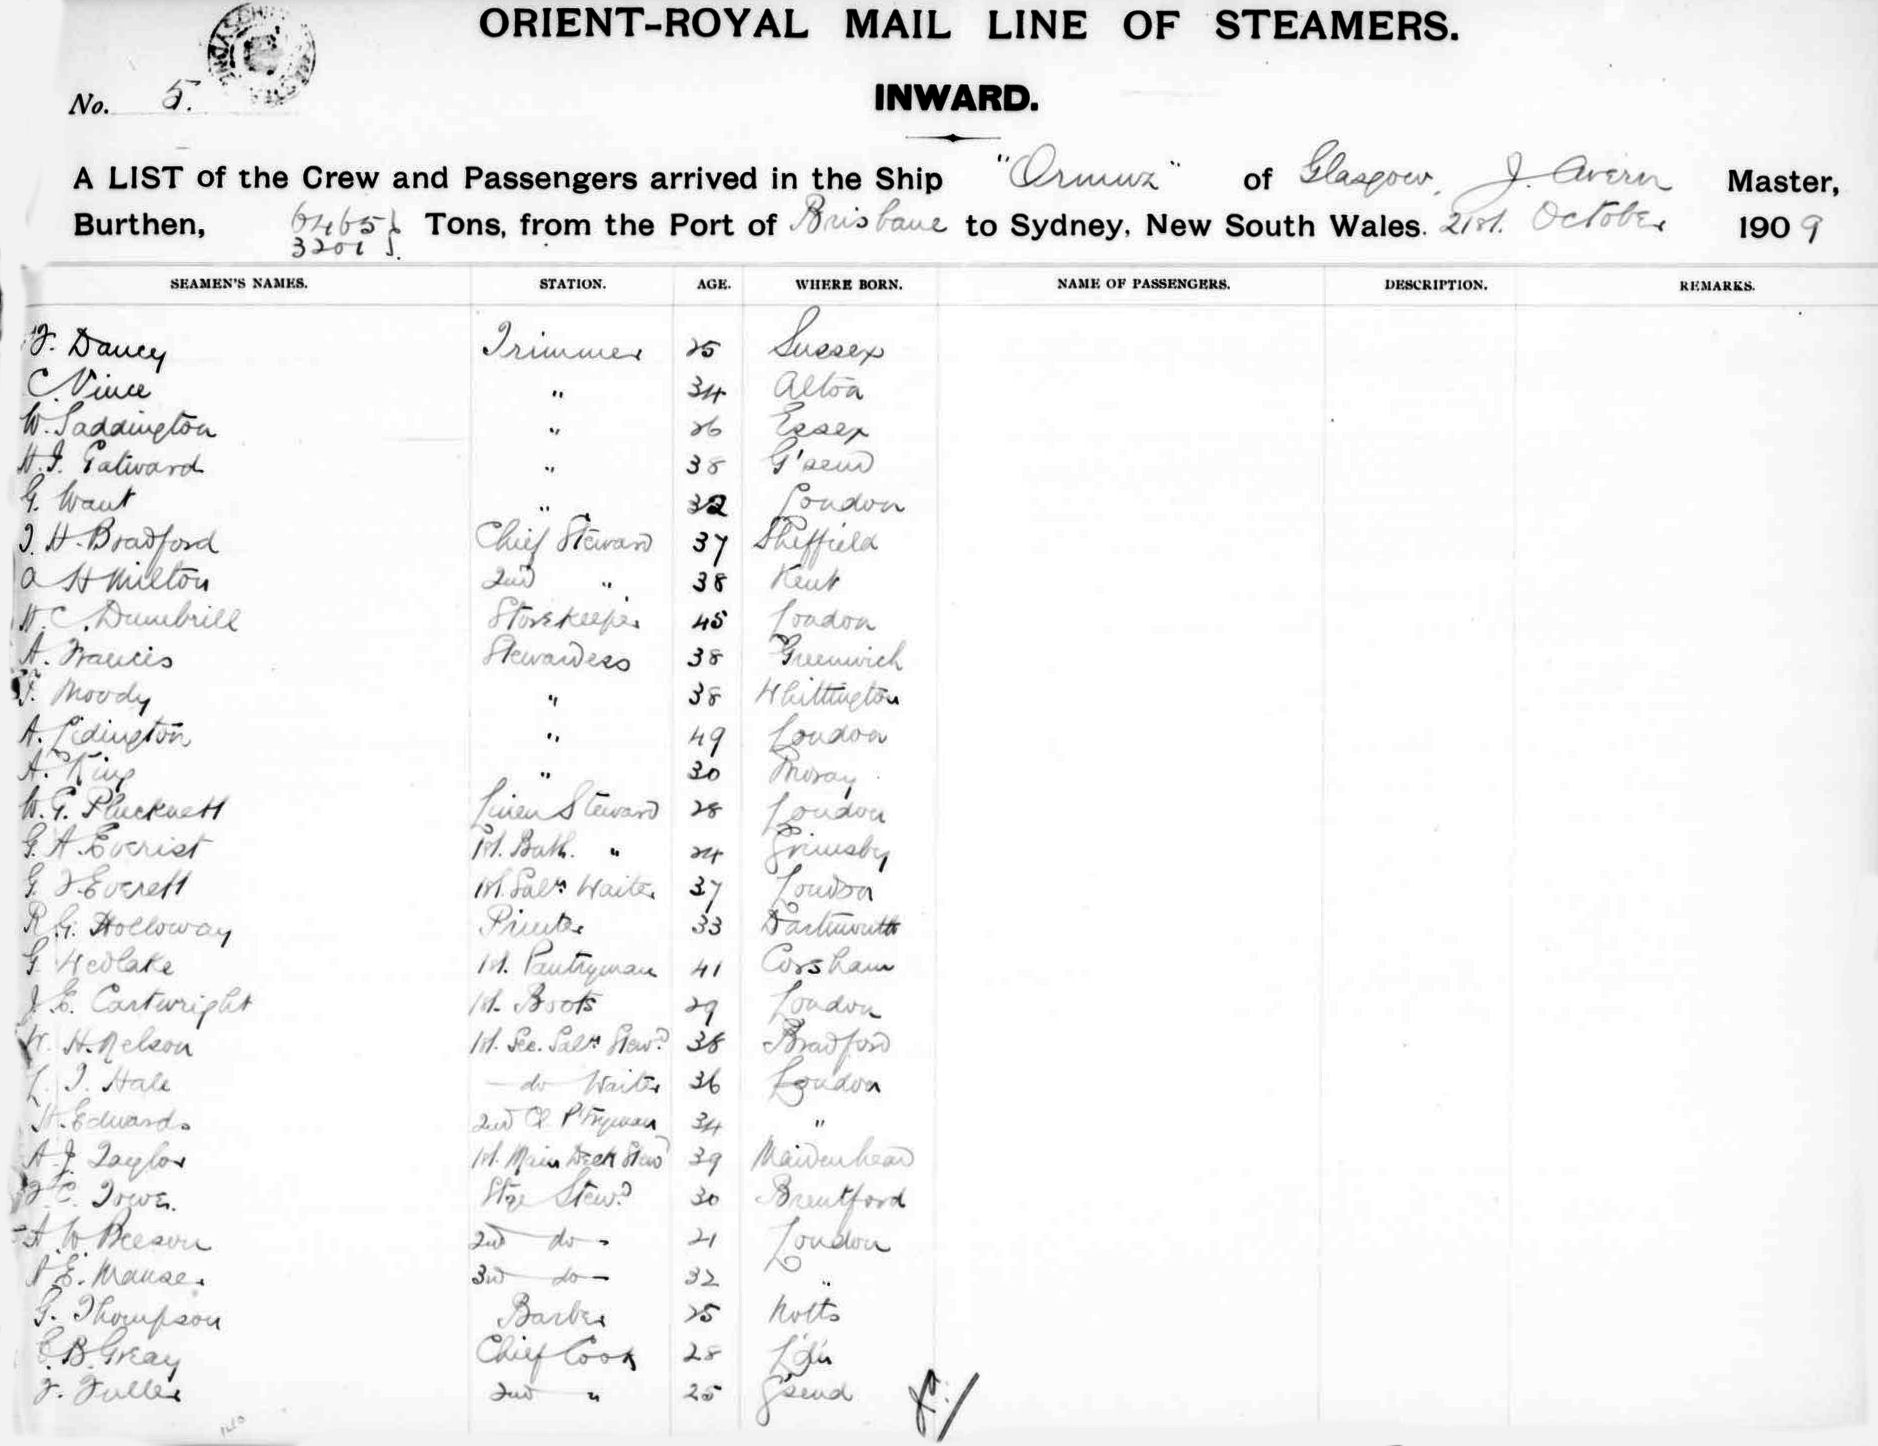 ORIENT-ROYAL MAIL LINE OF STEAMERS.
No. 5.
INWARD.
A LIST of the Crew and Passengers arrived in the Ship "Ormuz" of Glasgow, J. Avern Master,
Burthen, 6465 3201 Tons, from the Port of Brisbane to Sydney, New South Wales. 21st. October 1909
SEAMEN'S NAMES. STATION. AGE. WHERE BORN. NAME OF PASSENGERS. DESCRIPTION. REMARKS.
F. Dancy Trimmer 25 Sussex
C. Vince " 34 Altoa
W. Saddington " 26 Essex
H. J. Gatward " 38 G'send
G. Want " 32 London
J. H. Bradford Chief Steward 37 Sheffield
A H Milton 2nd " 38 Kent
H. C. Dumbrill Storekeeper 45 London
A. Francis Stewardess 38 Greenwich
F. Moody " 38 Whittington
A. Lidington " 49 London
A. King " 30 Moray
W. G. Plucknett Linen Steward 28 London
G. A. Everist 1st. Bath. " 24 Grimsby
G. F. Everett 1st Saln Waiter 37 London
R. G. Holloway Printer 33 Dartmouth
G. Hedlake 1st. Pantryman 41 Corsham
J. E. Cartwright 1st. Boots 29 London
W. H. Nelson 1st. Sec. Saln Stewd 38 Bradford
L. J. Hale do Waiter 36 London
H. Edwards 2nd Cl P'tryman 34 "
A. J. Taylor 1st. Main Deck Stewd 39 Maidenhead
F. C. Tower Stge Stewd 30 Brentford
A. W. Beeson 2nd do - 21 London
E. Manser 3rd do - 32 "
G. Thompson Barber 25 Notts
C. B. Greay Chief Cook 28 L'd'n
F. Fuller 2nd " 25 G'send